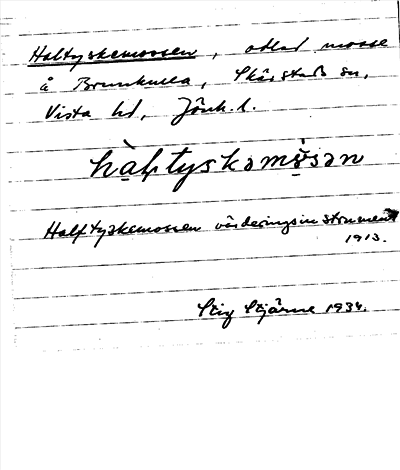 Haltyskemossen, odlad mosse
å Brunkulla, Skärstads sn,
Vista hd, Jönk. l.
hàl̥ftyskəmò̤sən
Halftyskemossen värderingsinstrument
1913.
Stig Stjärne 1934.